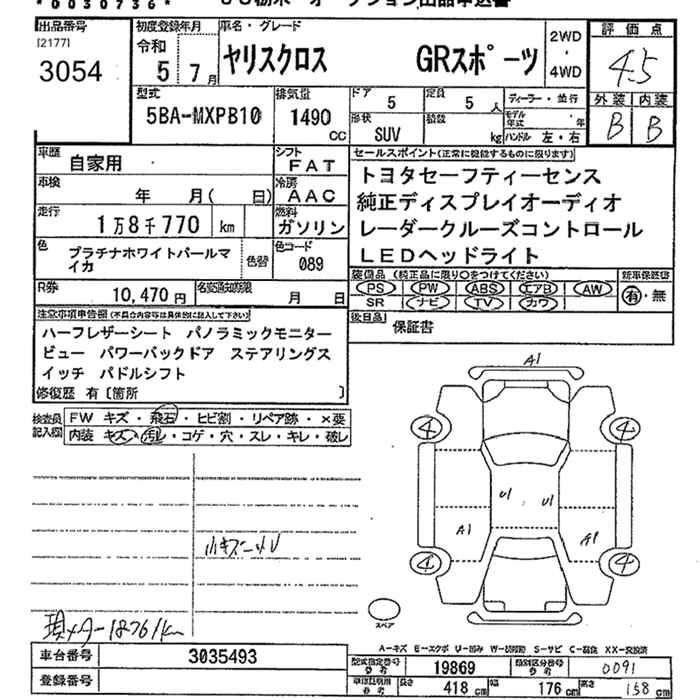 *0030736*
出品番号
(2177)
3054
初度登録年月
令和
5 7月
車名・グレード
ヤリスクロス GRスポーツ
2WD
・
4WD
評価点
4.5
外装 内装
B B
型式
5BA-MXPB10
排気量
1490
CC
ドア 5
定員 5 人
形状 SUV
積載 kg
ディーラー・並行
モデル年式 年
ハンドル 左・右
車歴
自家用
シフト
FAT
車検
年 月( 日)
冷房
AAC
走行
1万8千770 km
燃料
ガソリン
色
プラチナホワイトパールマイカ
色替
色コード
089
R券
10,470円
名変通知期限
月 日
セールスポイント(正常に機能するものに限ります)
トヨタセーフティーセンス
純正ディスプレイオーディオ
レーダークルーズコントロール
LEDヘッドライト
装備品 (純正品に限り○をつけてください)
PS PW ABS エアB AW
SR ナビ TV カワ
新車保証書
有・無
後日品
保証書
注意事項申告欄(不具合内容は具体的に記入して下さい)
ハーフレザーシート パノラミックモニター
ビュー パワーバックドア ステアリングス
イッチ パドルシフト
修復歴 有〔箇所 〕
検査員
記入欄
FW キズ・飛石・ヒビ割・リペア跡・×要
内装 キズ・汚レ・コゲ・穴・スレ・キレ・破レ
A1
4 4
U1 U1
A1 A1
4 4
スペア
小キズ
現メーター18761km
A-キズ E-エクボ U-凹み W-補修跡 S-サビ C-腐蝕 XX-交換済
車台番号
3035493
登録番号
型式指定番号
参考
19869
類別区分番号
参考
0091
長さ 418 cm
幅 176 cm
高さ 158 cm